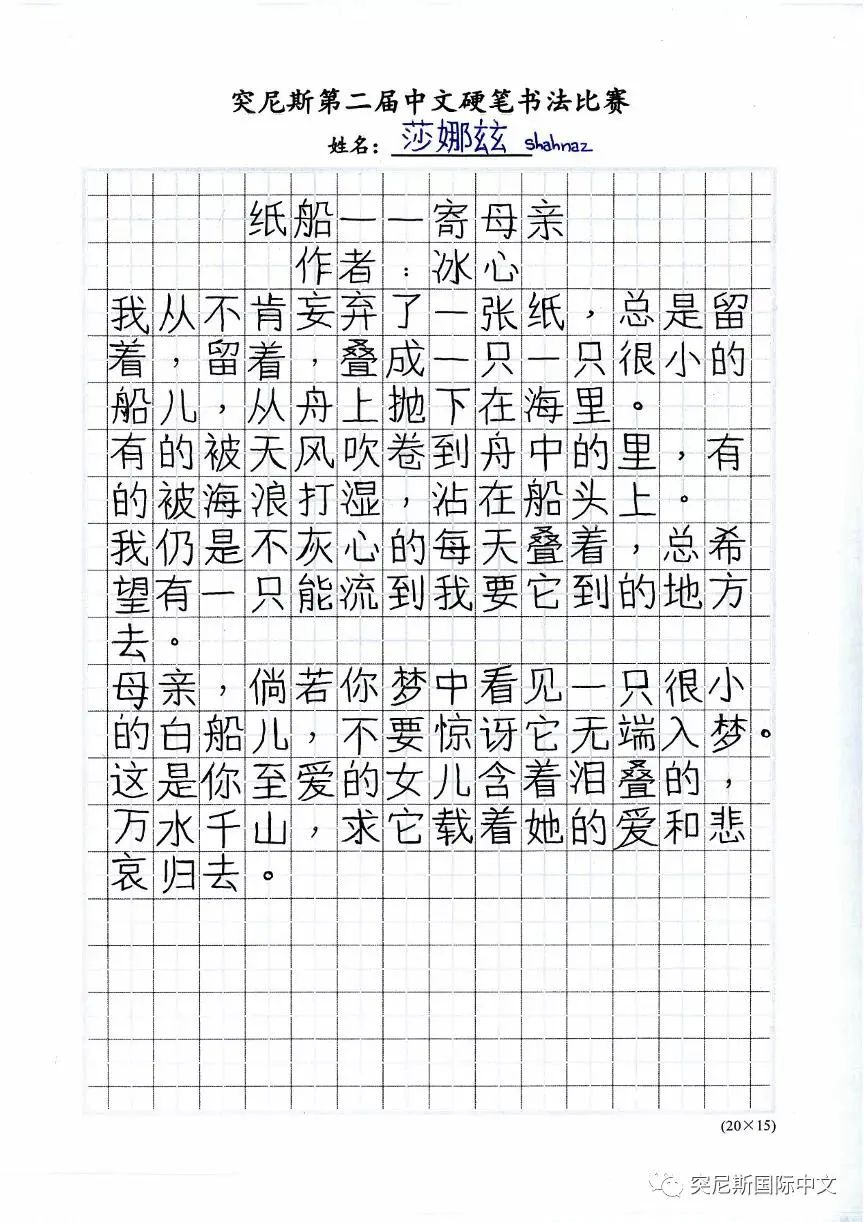 突尼斯第二届中文硬笔书法比赛
姓名：莎娜兹 shahnaz
纸船——寄母亲
作者：冰心
我从不肯妄弃了一张纸，总是留
着，留着，叠成一只一只很小的
船儿，从舟上抛下在海里。
有的被天风吹卷到舟中的里，有
的被海浪打湿，沾在船头上。
我仍是不灰心的每天叠着，总希
望有一只能流到我要它到的地方
去。
母亲，倘若你梦中看见一只很小
的白船儿，不要惊讶它无端入梦。
这是你至爱的女儿含着泪叠的，
万水千山，求它载着她的爱和悲
哀归去。
(20×15)
突尼斯国际中文